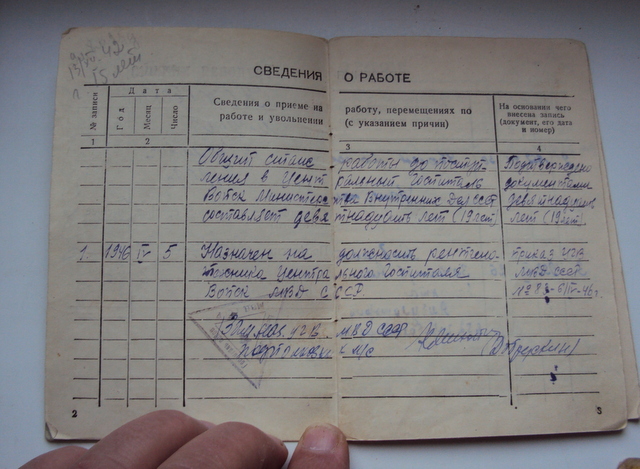 42
15 лет
СВЕДЕНИЯ О РАБОТЕ
№ записи
Дата
Год
Месяц
Число
Сведения о приеме на работу, перемещениях по
работе и увольнении (с указанием причин)
На основании чего
внесена запись
(документ, его дата
и номер)
1 2 3 4
Общий стаж работы до поступ- Подтверждено
ления в Центральный Госпиталь документами
Войск Министерства Внутренних Дел СССР девятнадцать
составляет девятнадцать лет (19 лет) лет (19 лет).
1. 1946 IV 5 Назначен на должность рентгено- приказ УГВ
техника Центрального Госпиталя МВД СССР
Войск МВД СССР
МВД СССР
2 3